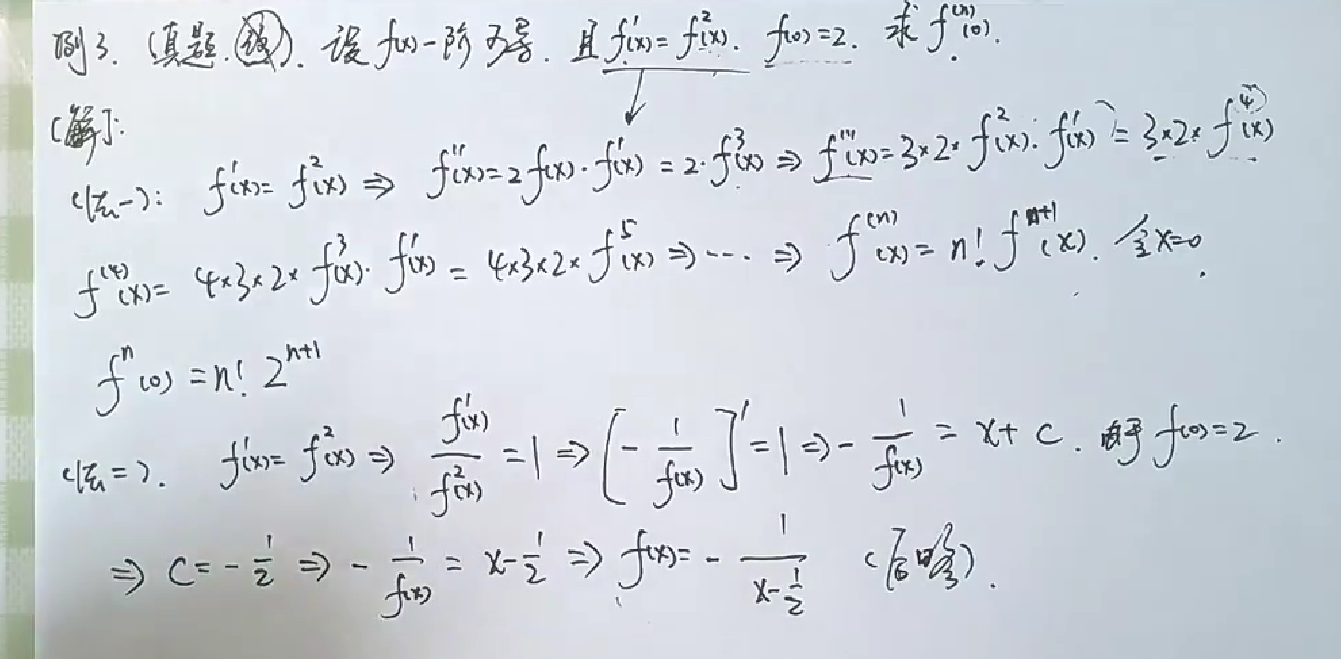 例3. (真题. ). 设 f(x) 一阶可导. 且 f'(x) = f²(x). f(0) = 2. 求 f⁽ⁿ⁾(0).
[解]:
(法一): f'(x) = f²(x) ⇒ f''(x) = 2f(x)·f'(x) = 2·f³(x) ⇒ f'''(x) = 3×2×f²(x)·f'(x) = 3×2×f⁴(x)
f⁽⁴⁾(x) = 4×3×2×f³(x)·f'(x) = 4×3×2×f⁵(x) ⇒ ··· ⇒ f⁽ⁿ⁾(x) = n! fⁿ⁺¹(x). 令x=0.
fⁿ(0) = n! 2ⁿ⁺¹
(法二). f'(x) = f²(x) ⇒ f'(x)/f²(x) = 1 ⇒ [-1/f(x)]' = 1 ⇒ -1/f(x) = x + C. 由于 f(0) = 2.
⇒ C = -1/2 ⇒ -1/f(x) = x - 1/2 ⇒ f(x) = -1/(x - 1/2) (后略).